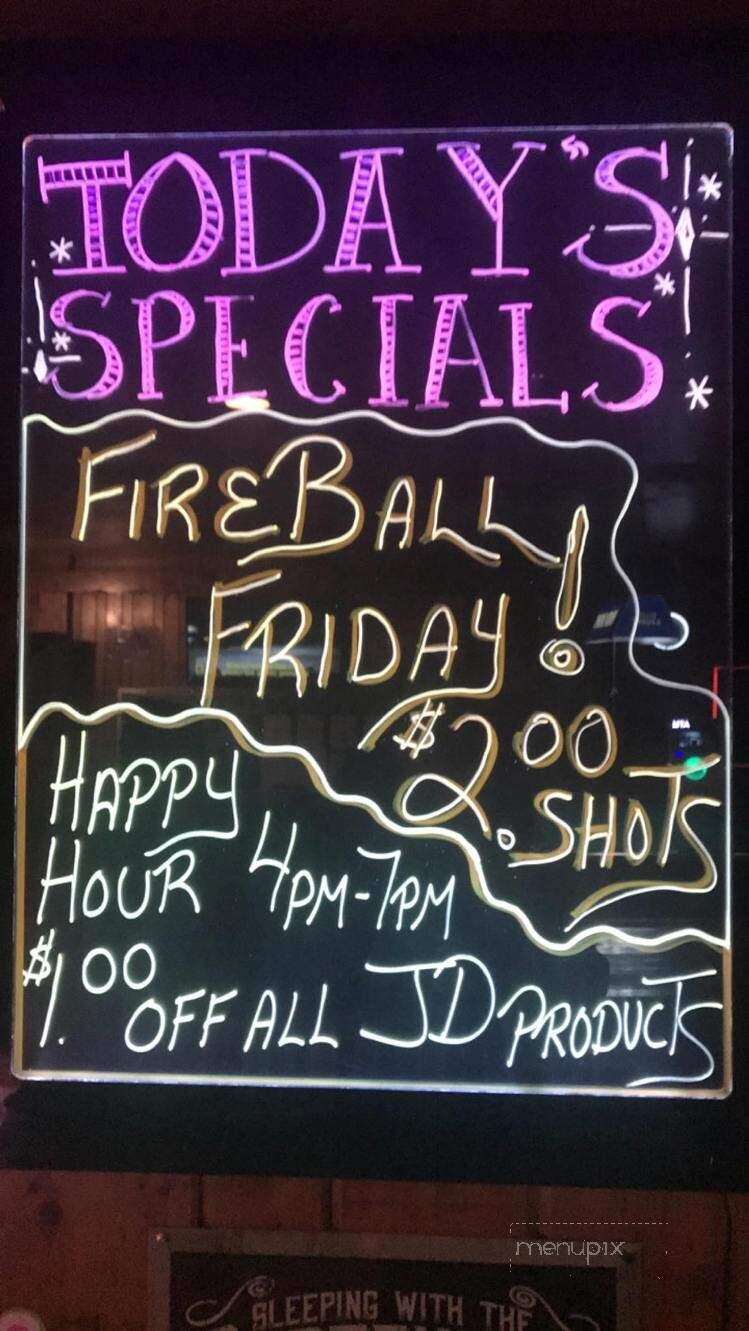 TODAY'S
SPECIALS
FIREBALL
FRIDAY!
$2.00
SHOTS
HAPPY
HOUR 4PM-7PM
$1.00
OFF ALL JD PRODUCTS
menupix
SLEEPING WITH THE